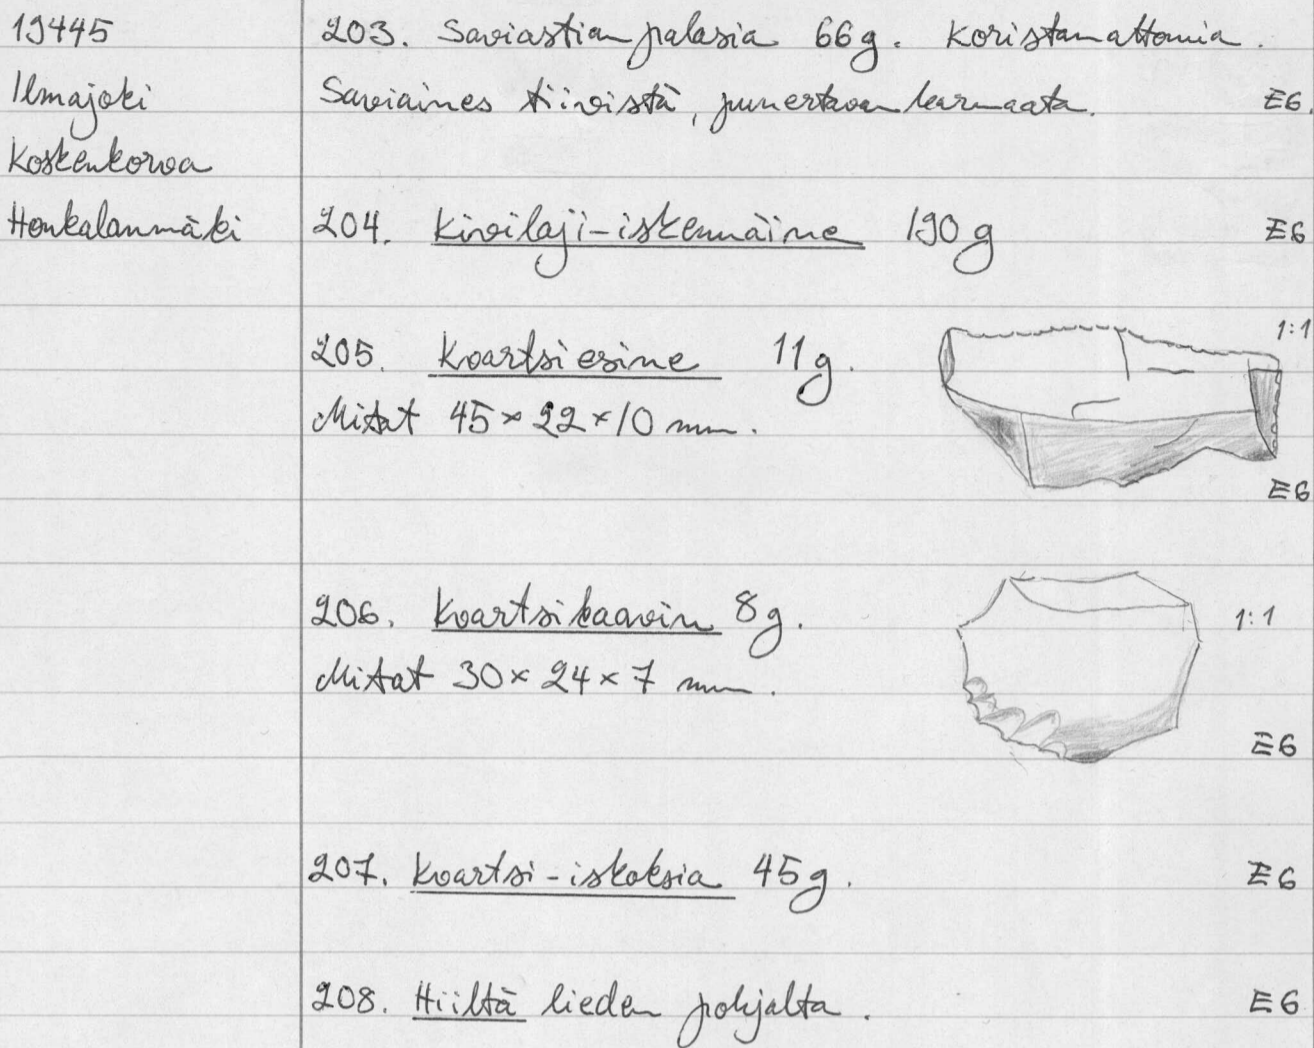 19445
Ilmajoki
Koskenkorva
Honkalanmäki
203. Saviastian palasia 66g. Koristamattomia.
Saviaines tiivistä, punertavan harmaata. E6
204. Kivilaji-iskennäine 190 g E6
205. Kvartsiesine 11g. 1:1
Mitat 45 × 22 × 10 mm. E6
206. Kvartsikaavin 8g. 1:1
Mitat 30 × 24 × 7 mm. E6
207. Kvartsi-iskoksia 45g. E6
208. Hiiltä lieden pohjalta. E6